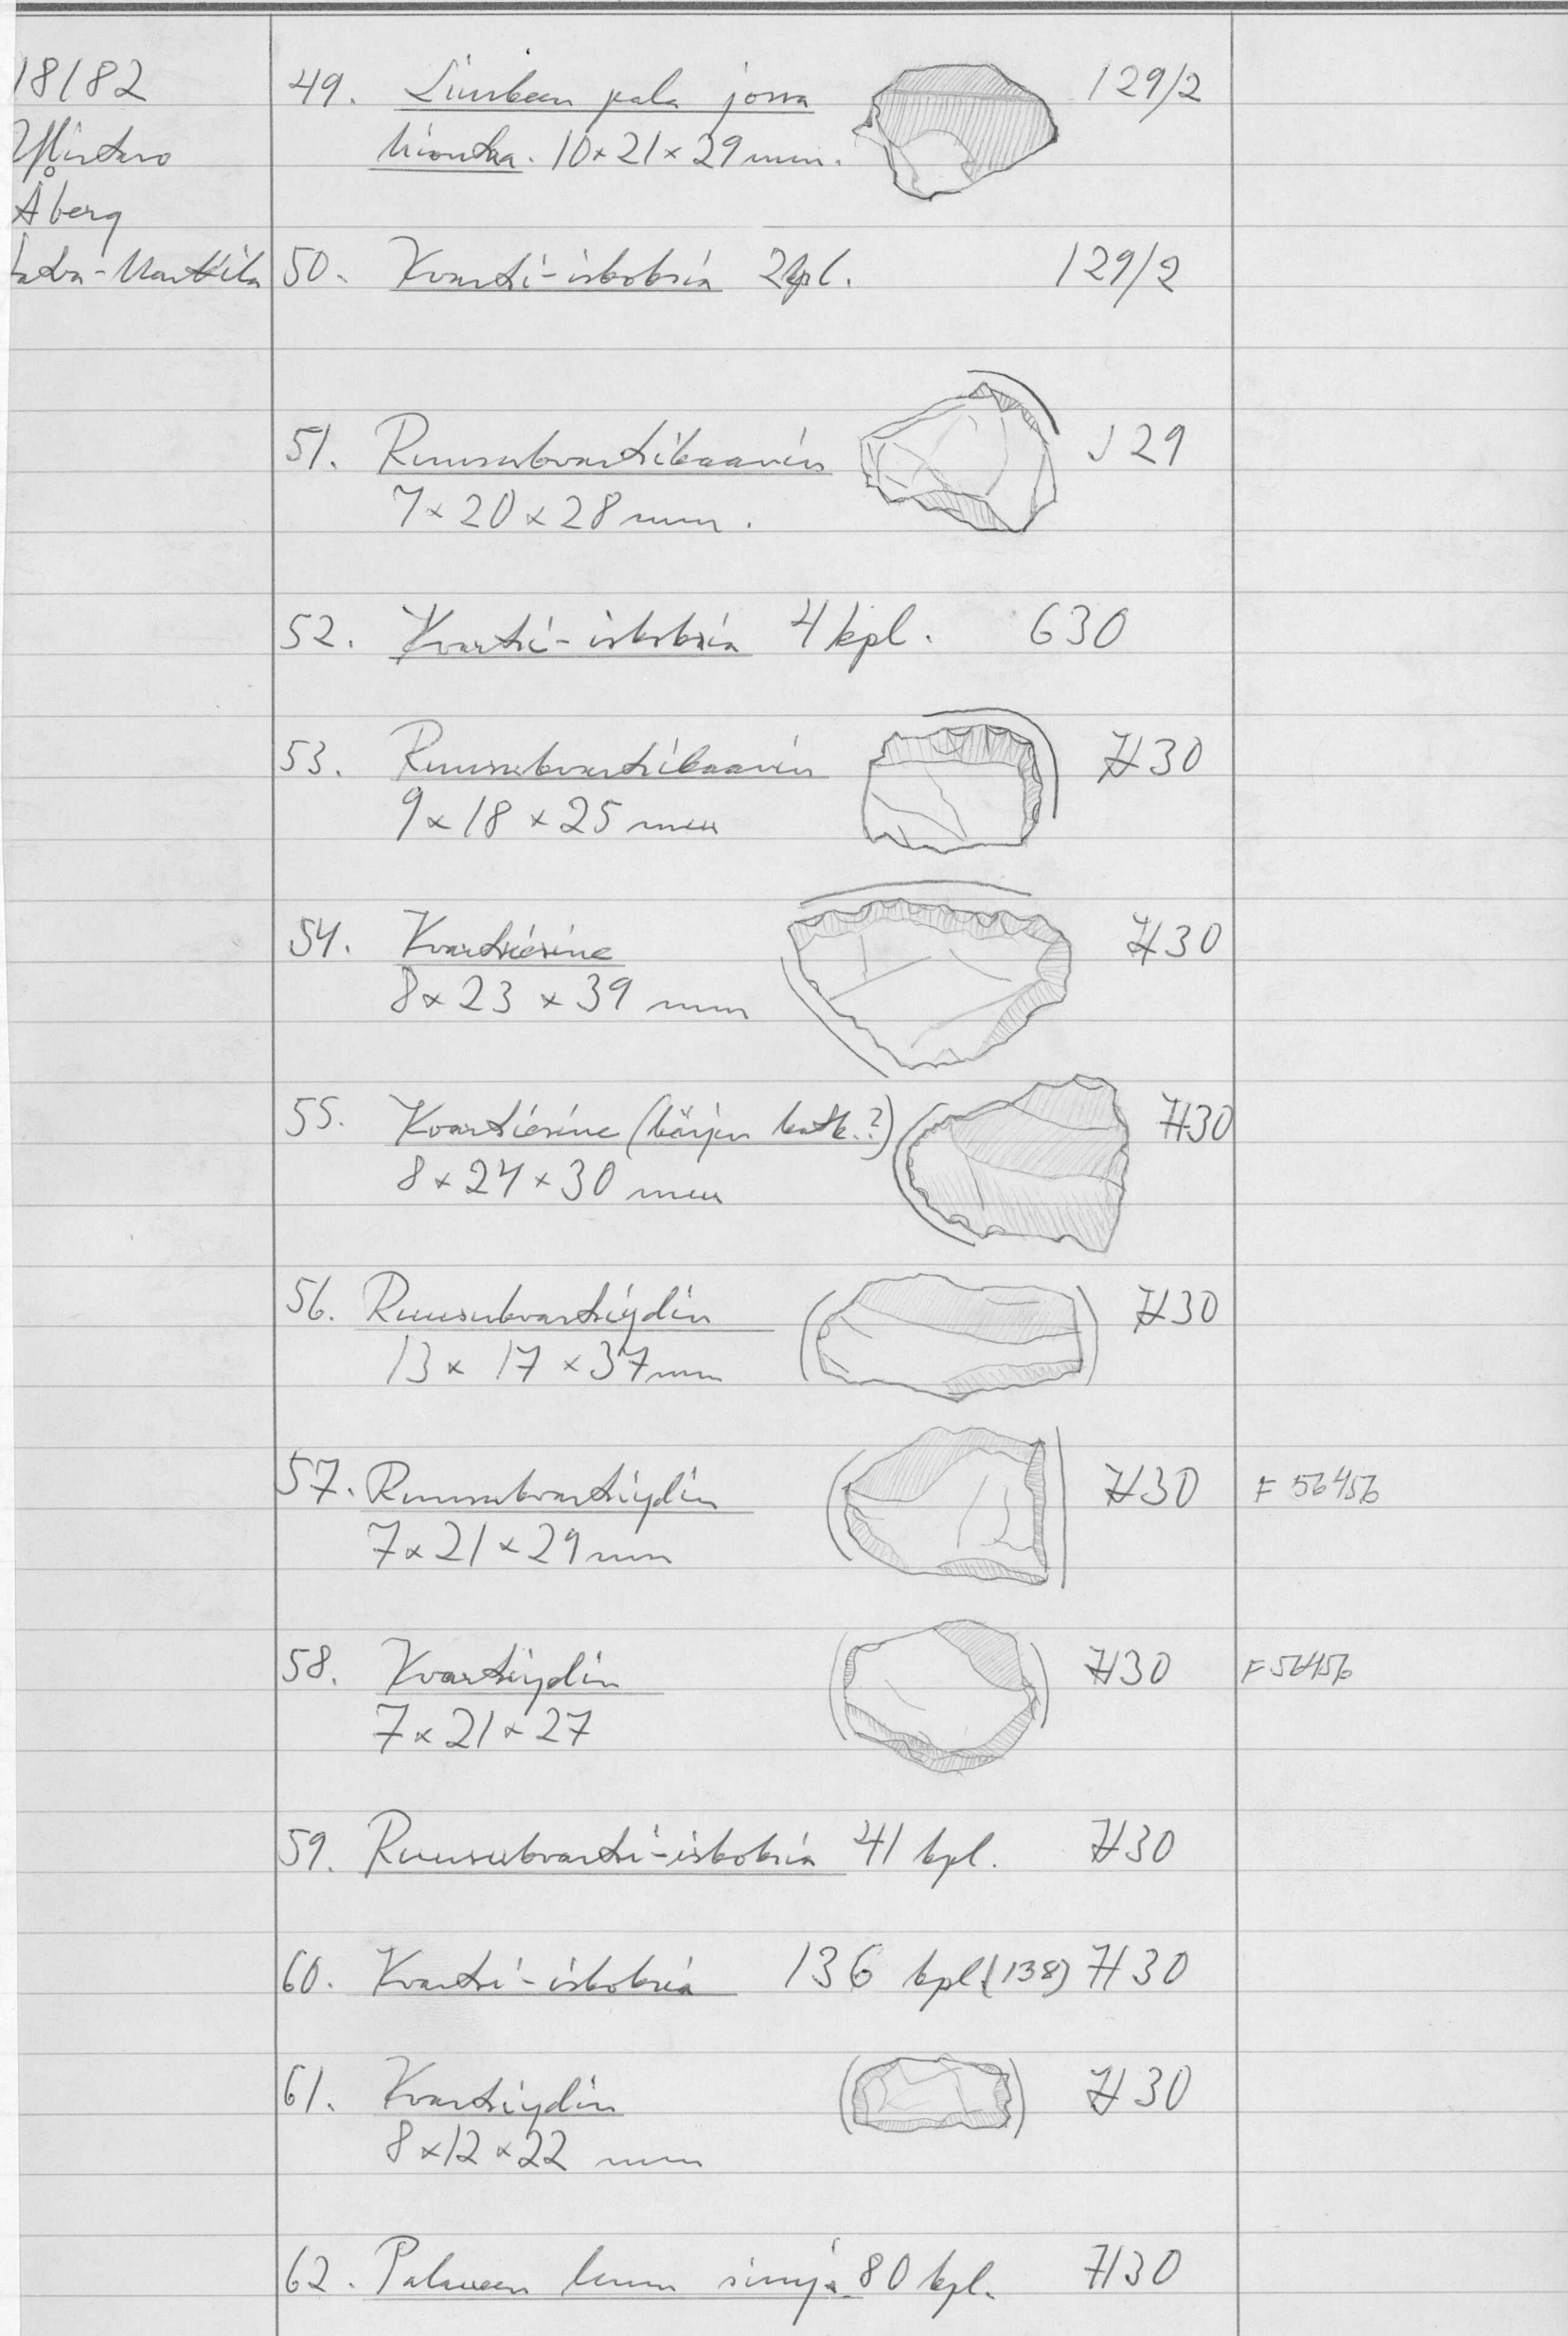 18182
Ylistaro
Åberg
-Marttila
49. Liuskeen pala jossa 129/2
hiontaa. 10×21×29 mm.
50. Kvartsi-iskoksia 2kpl. 129/2
51. Ruusukvartsikaavin J29
7×20×28 mm.
52. Kvartsi-iskoksia 4 kpl. G30
53. Ruusukvartsikaavin H30
9×18×25 mm
54. Kvartsiesine H30
8×23×39 mm
55. Kvartsiesine (kärjen katk.?) H30
8×24×30 mm
56. Ruusukvartsiydin H30
13×17×37mm
57. Ruusukvartsiydin H30 F 56456
7×21×29 mm
58. Kvartsiydin H30 F 56456
7×21×27
59. Ruusukvartsi-iskoksia 41 kpl. H30
60. Kvartsi-iskoksia 136 kpl. (138) H30
61. Kvartsiydin H30
8×12×22 mm
62. Palaneen luun siruja 80 kpl. H30